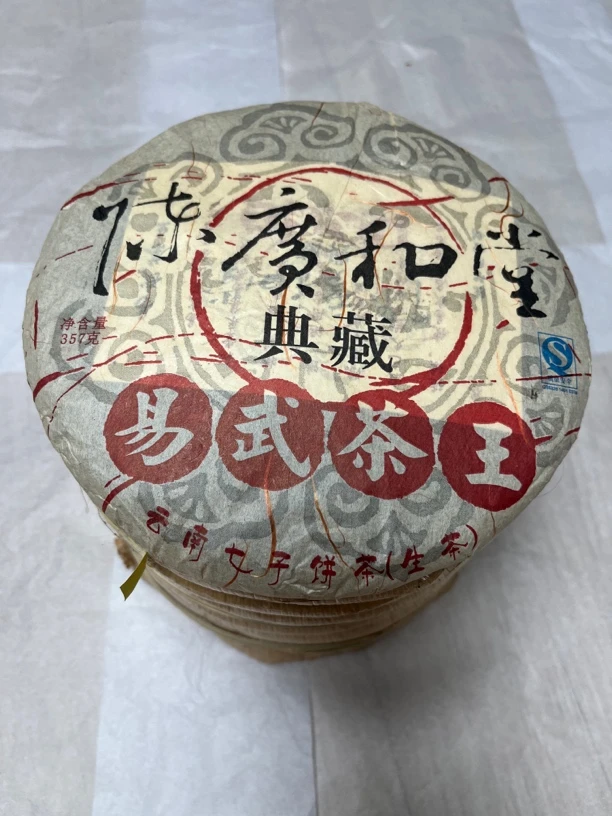 陈廣和堂
典藏
净含量
357克
易武茶王
云南女子饼茶(生茶)